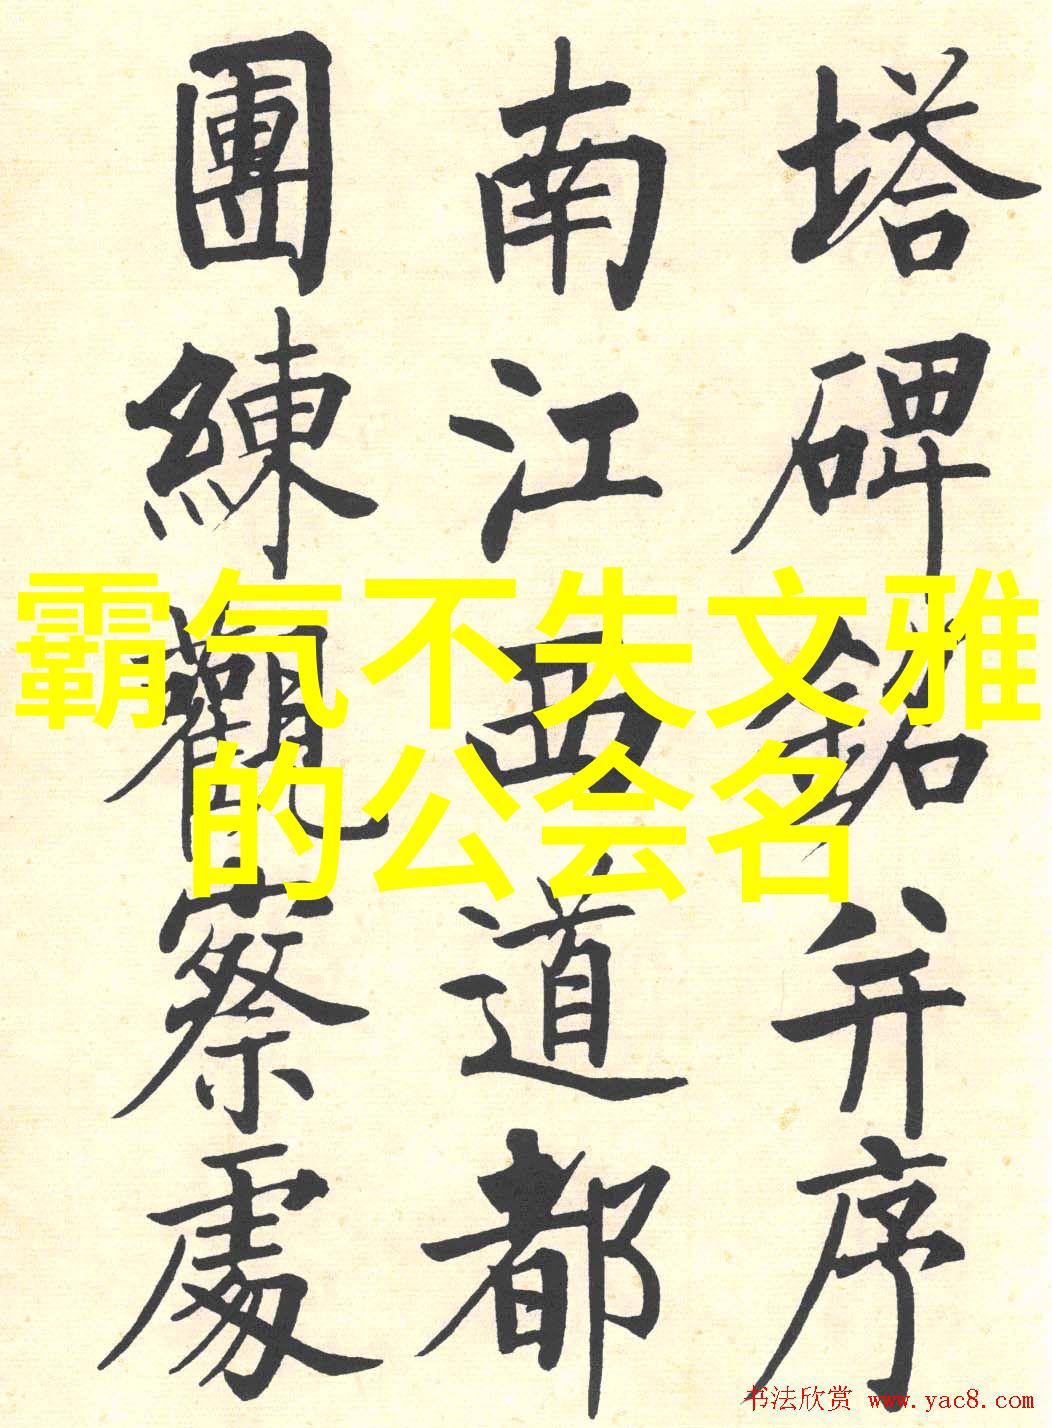 塔碑銘并序
南江西道都
團練觀察處
霸气不失文雅
的公会名
书法欣赏 www.yac8.com